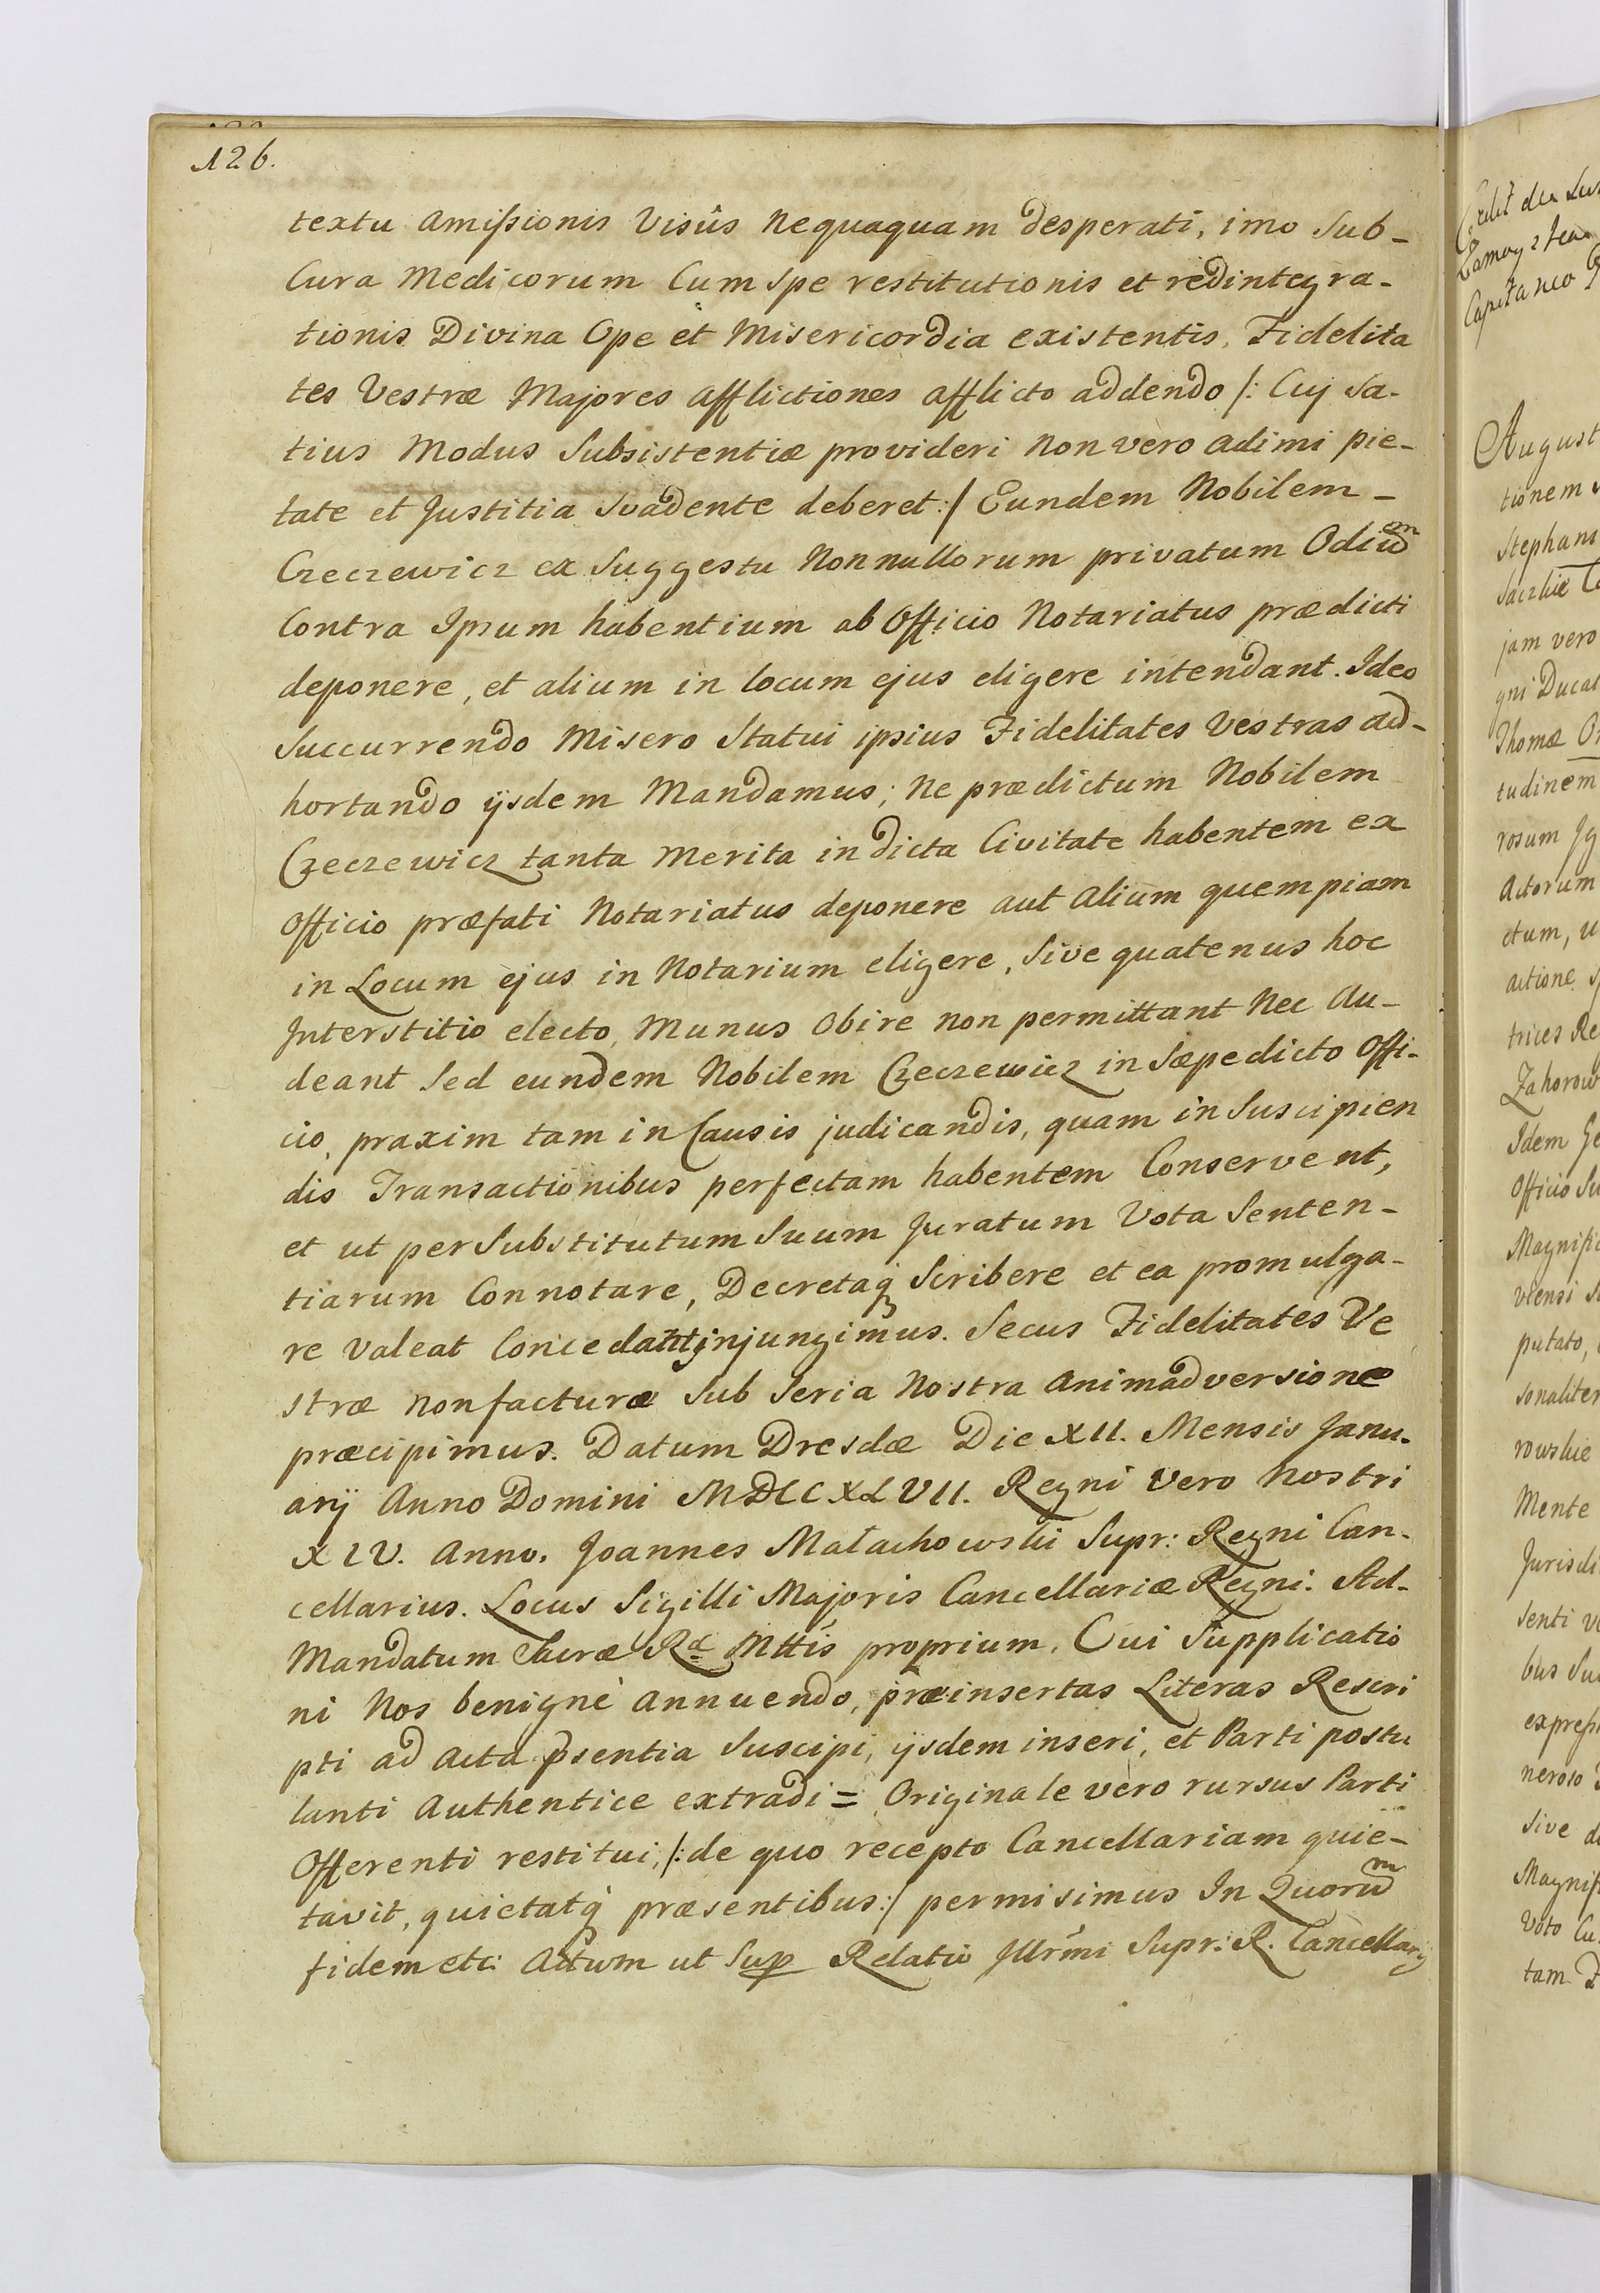 126.
textu amissionis Visûs nequaquam desperati, imo Sub-
Cura Medicorum Cum spe restitutionis et redintegra-
tionis Divina Ope et Misericordia existentis, Fidelita
tes Vestræ Majores afflictiones afflicto addendo /: Cuj Sa-
tius Modus Subsistentiæ provideri non vero adimi pie-
tate et Justitia Svadente deberet :/ Eundem Nobilem -
Czeczewicz ex Suggestu Nonnullorum privatum Odium
Contra Ipsum habentium ab Officio Notariatus prædicti
deponere, et alium in locum ejus eligere intendant. Ideo
Succurrendo Misero Statui ipsius Fidelitates Vestras ad-
hortando ijsdem Mandamus; Ne prædictum Nobilem
Czeczewicz tanta Merita in dicta Civitate habentem ex
Officio præfati Notariatus deponere aut alium quempiam
in Locum ejus in Notarium eligere, Sive quatenus hoc
Interstitio electo, Munus Obire non permittant Nec Au-
deant Sed eundem Nobilem Czeczewicz in Sæpedicto Offi-
cio, praxim tam in Causis judicandis, quam in Suscipien
dis Transactionibus perfectam habentem Conservent,
et ut per Substitutum Suum Juratum Vota Senten-
tiarum Connotare, Decretaq Scribere et ea promulga-
re Valeat Concedant injungimus. Secus Fidelitates Ve
stræ non facturæ Sub Seria Nostra animadversione
præcipimus. Datum Dresdæ Die XII. Mensis Janu-
arij Anno Domini MDCCXLVII. Regni Vero Nostri
XIV. Anno. Joannes Małachowski Supr: Regni Can-
cellarius. Locus Sigilli Majoris Cancellariæ Regni. Ad-
Mandatum Sacræ Ræ Mttis proprium. Cui Supplicatio
ni Nos benignè annuendo, præinsertas Literas Rescri
pti ad Acta psentia Suscipi, ijsdem inseri, et Parti postu
lanti Authentice extradi = Originale vero rursus Parti
Offerenti restitui, /: de quo recepto Cancellariam quie-
tavit, quietatq præsentibus :/ permisimus In Quorum
fidem etc: Actum ut Sup Relatio Jllrmi Supr: R. Cancellarij
August
tionem
Stephan
jam vero
Thomæ
tudinem
rosum
Actorum
ctum,
actione
trices Re
Zahorow
Idem Ge
Officio Su
Magnific
putato,
sonaliter
Mente
Jurisdi
senti
bus Su
neroso
Sive de
Magnif
Voto Cu
tam